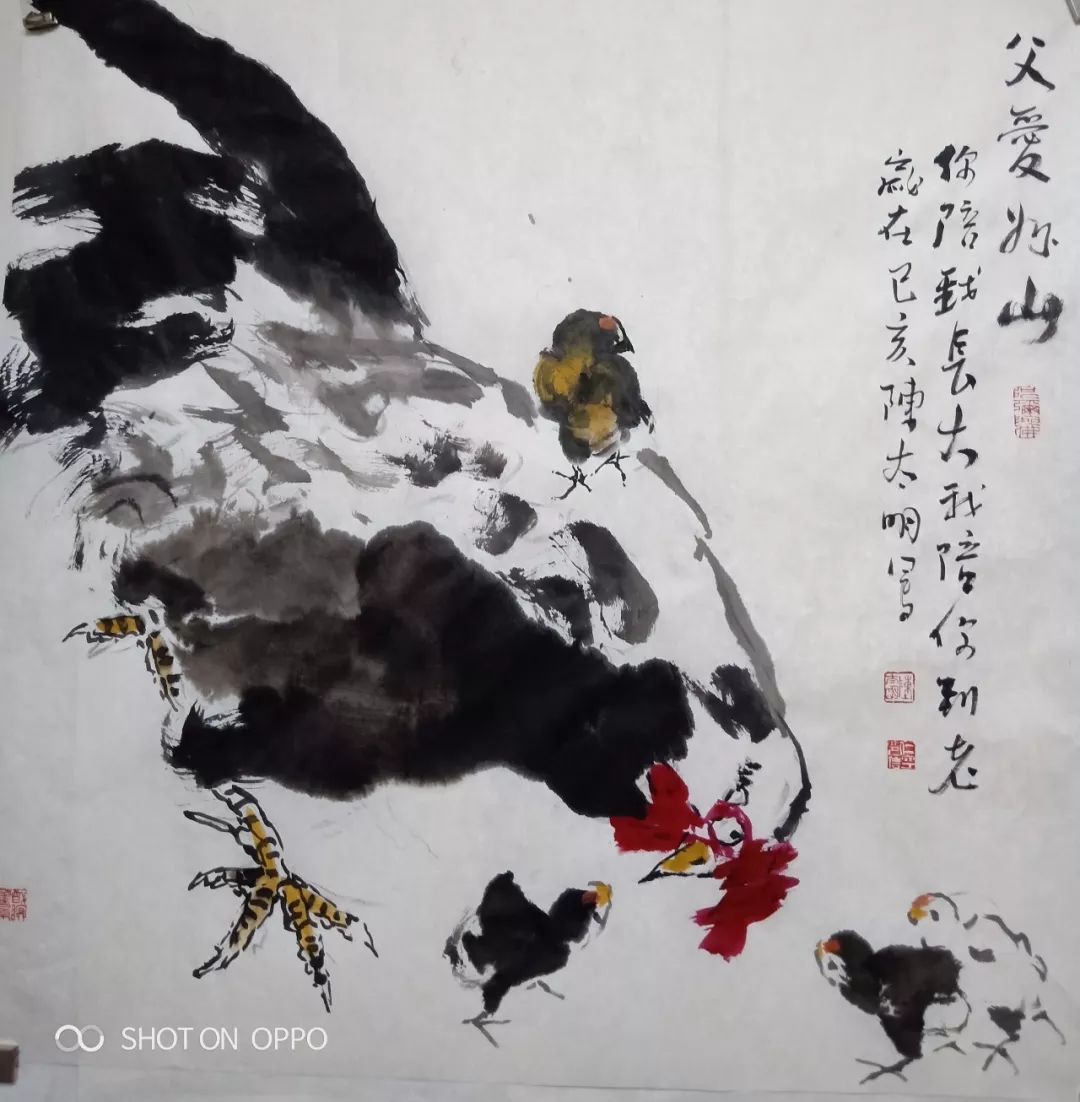 父愛如山
你陪我長大我陪你到老
歲在己亥陳太明寫
SHOT ON OPPO